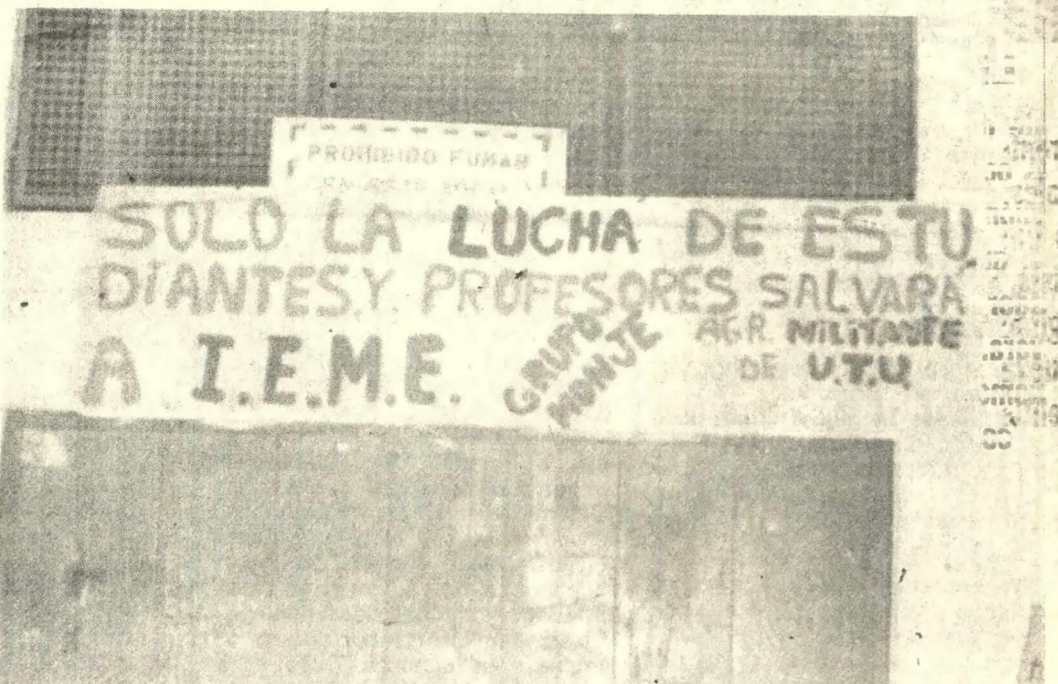 PROHIBIDO FUMAR
SOLO LA LUCHA DE ESTU
DIANTES.Y. PROFESORES SALVARA
A I.E.M.E.
GRUPO
MONJE
AGR. MILITANTE
DE U.T.U.